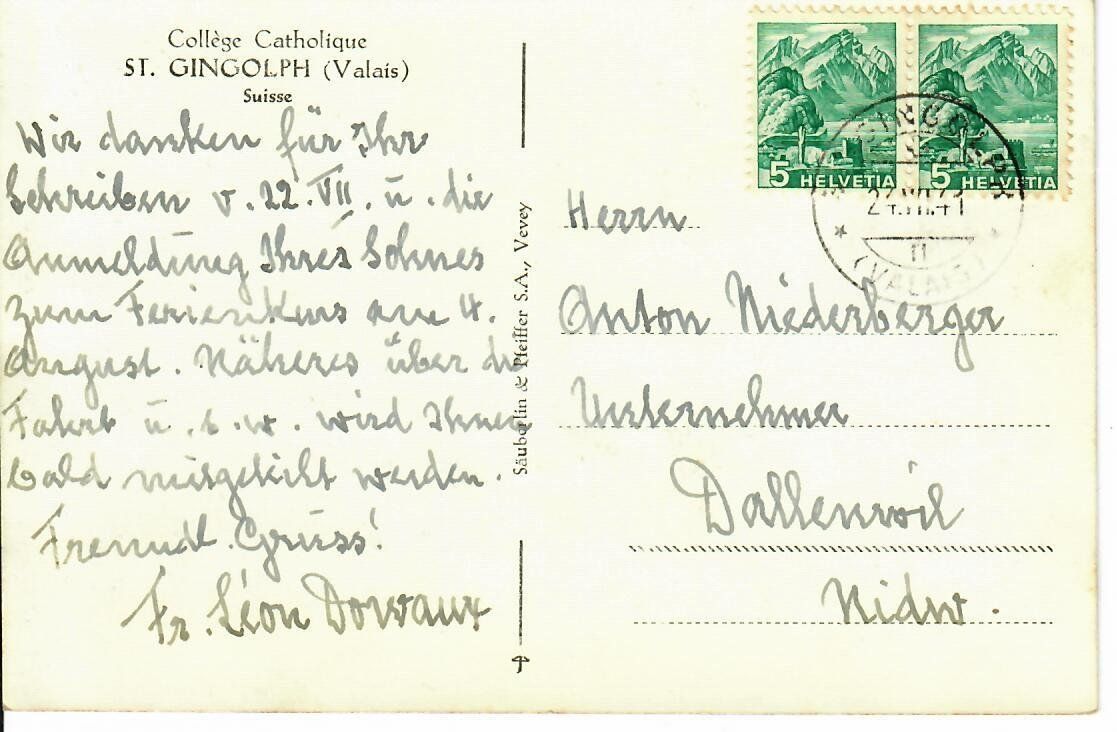 Collège Catholique
ST. GINGOLPH (Valais)
Suisse
Wir danken für Ihr
Schreiben v. 22. VII. u. die
Anmeldung Ihres Sohnes
zum Ferienkurs am 4.
August. Näheres über die
Fahrt u. s. w. wird Ihnen
bald mitgeteilt werden.
Freundl. Gruss!
Fr. Léon Dorvaux
Säuberlin & Pfeiffer S.A., Vevey
5 HELVETIA
5 HELVETIA
ST. GINGOLPH
24.VII.41
(VALAIS)
Herrn
Anton Niederberger
Unternehmer
Dallenwil
Nidw.